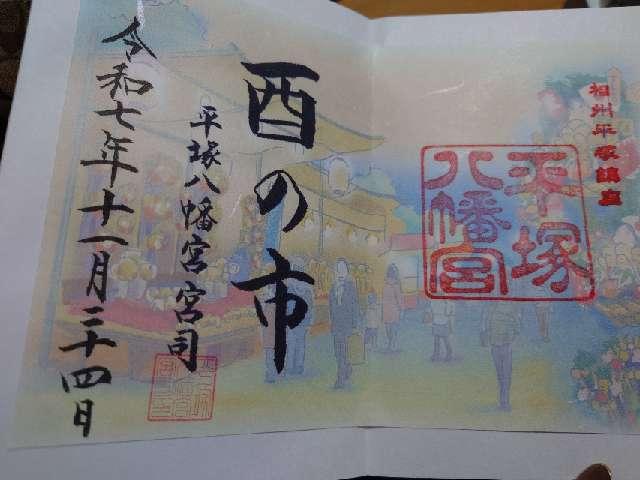 相州平塚鎮皇
平塚
八幡宮
酉の市
平塚八幡宮宮司
令和七年十一月二十四日